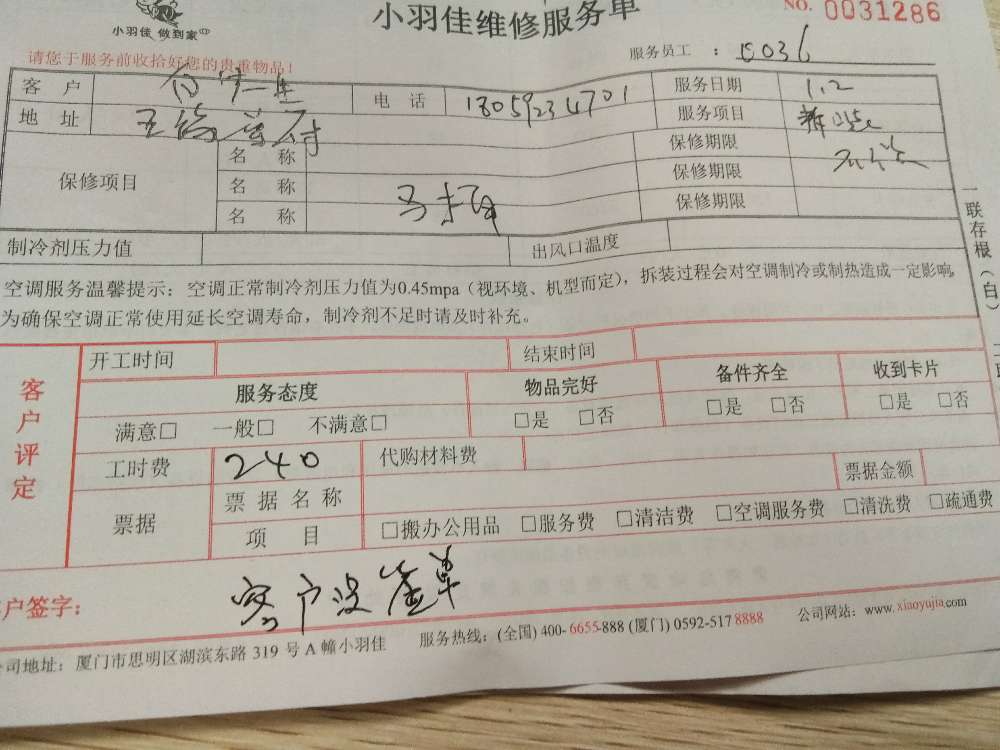 小羽佳维修服务单
NO. 0031286
小羽佳 做到家
请您于服务前收拾好您的贵重物品！
服务员工 ： 0036
客 户 电 话 18059234701 服务日期 1.2
地 址 服务项目
保修项目 名 称 保修期限
名 称 保修期限
名 称 保修期限
制冷剂压力值 出风口温度
空调服务温馨提示：空调正常制冷剂压力值为0.45mpa（视环境、机型而定），拆装过程会对空调制冷或制热造成一定影响，
为确保空调正常使用延长空调寿命，制冷剂不足时请及时补充。
客户评定
开工时间 结束时间
服务态度 物品完好 备件齐全 收到卡片
满意□ 一般□ 不满意□ □是 □否 □是 □否 □是 □否
工时费 240 代购材料费
票据 票 据 名 称 票据金额
项 目 □搬办公用品 □服务费 □清洁费 □空调服务费 □清洗费 □疏通费
户签字： 客户没签单
司地址：厦门市思明区湖滨东路 319 号 A 幢小羽佳 服务热线：(全国) 400-6655-888 (厦门) 0592-517 8888 公司网站：www.xiaoyujia.com
一联存根（白）